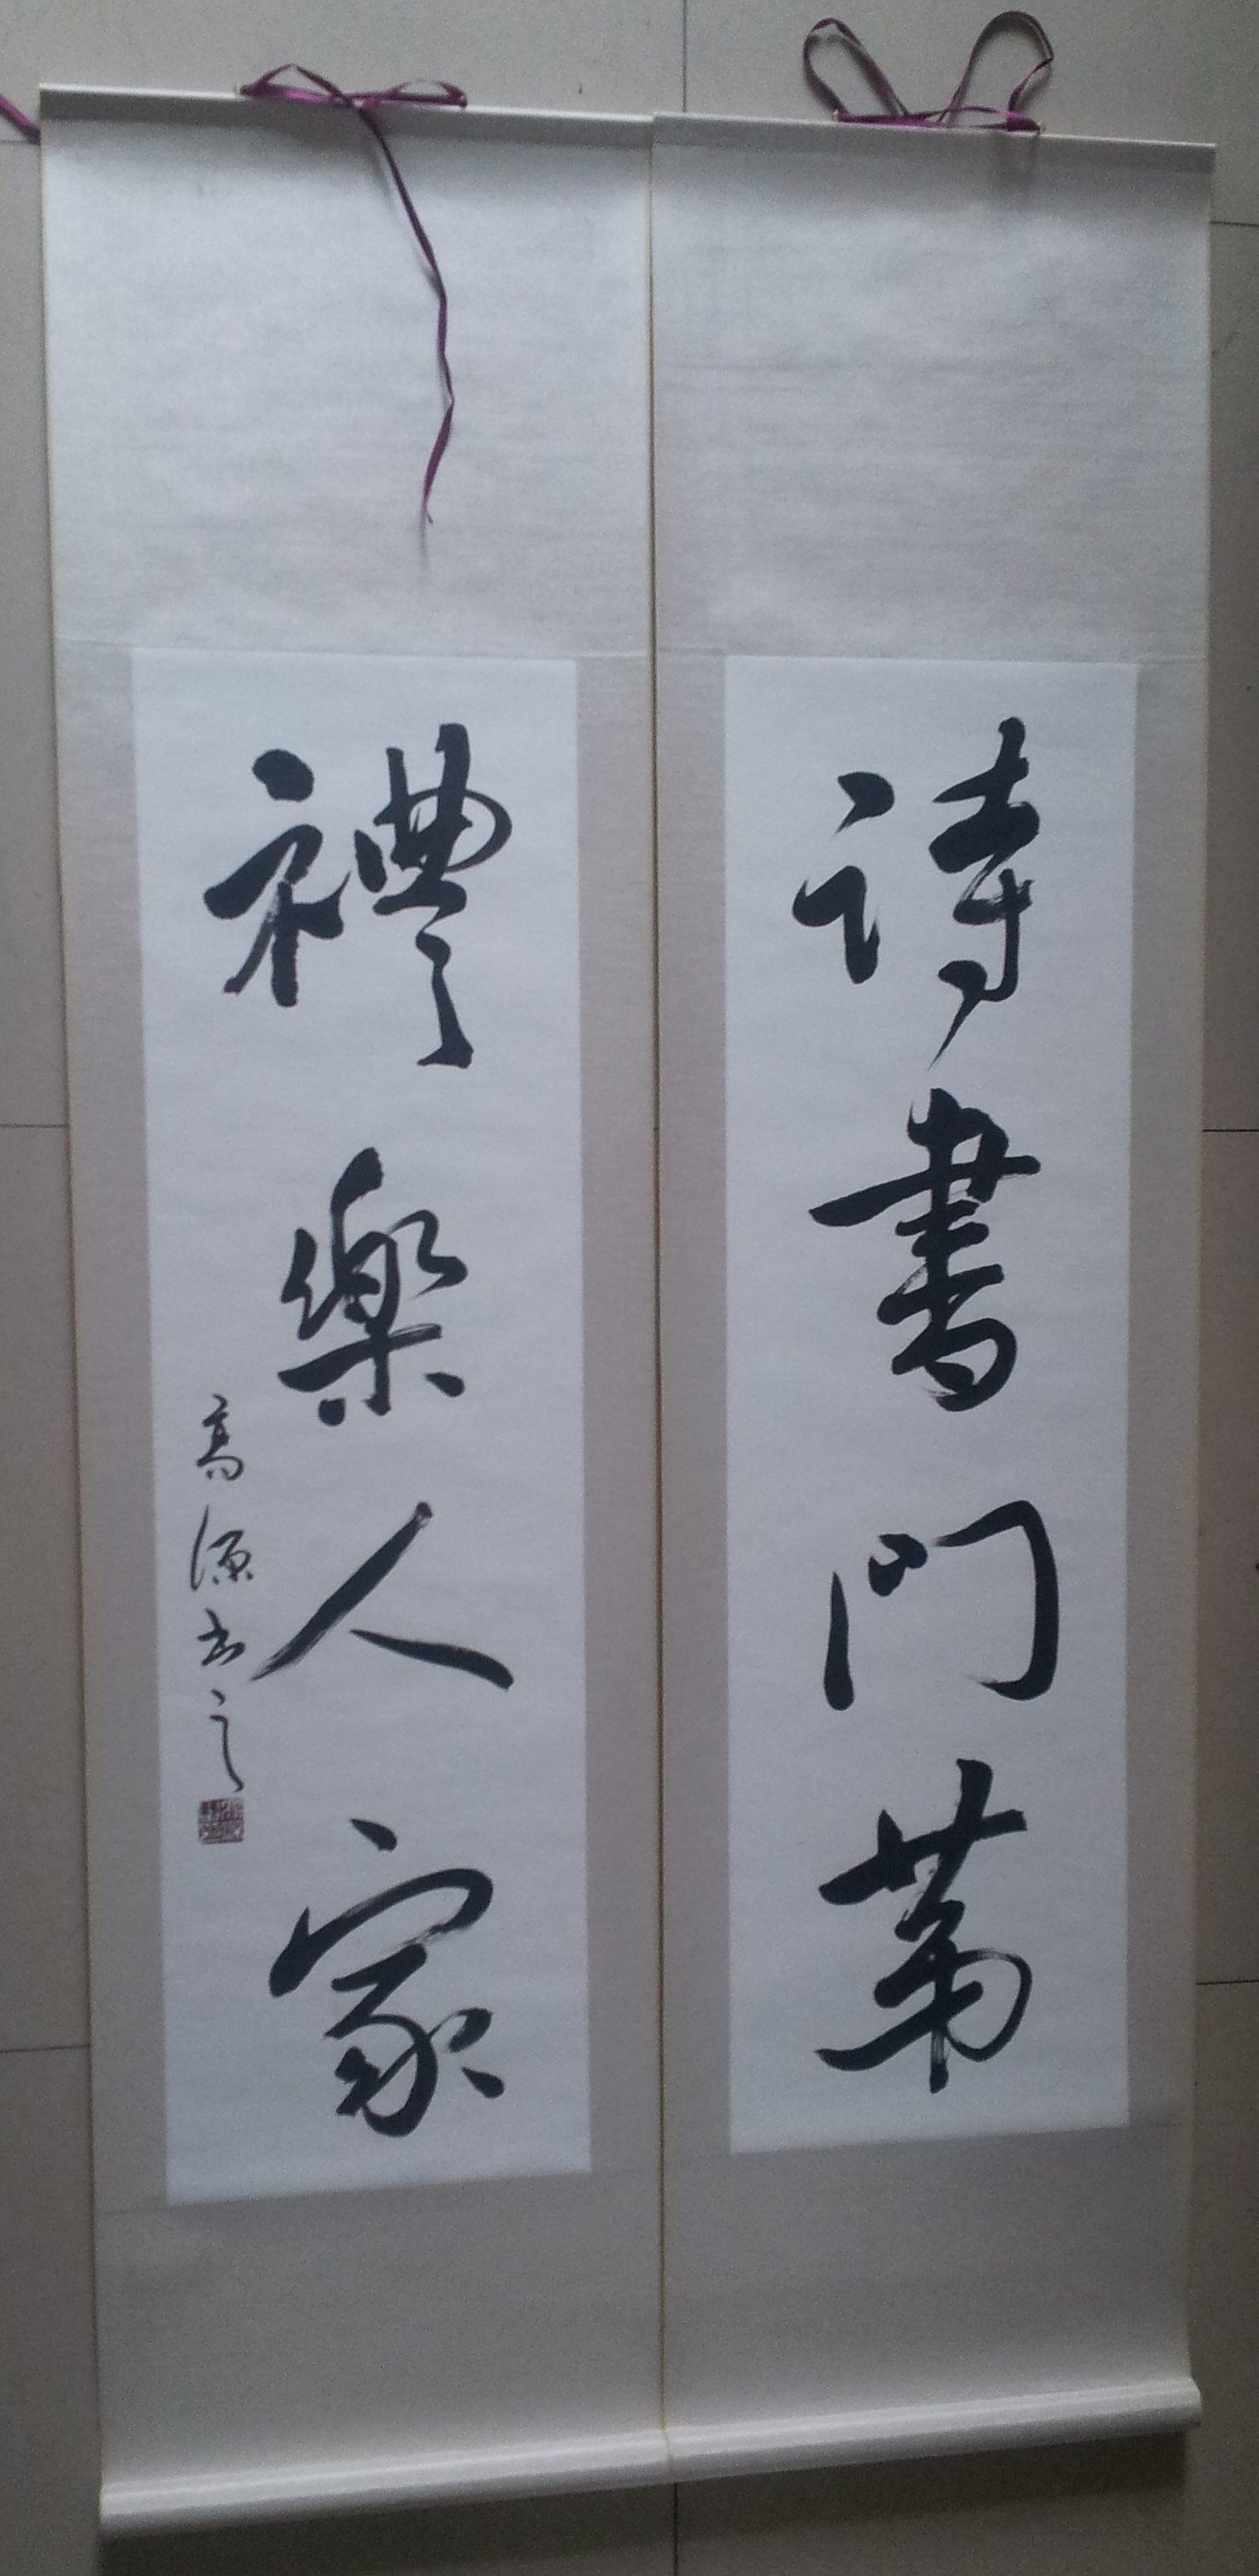 詩書門第
禮樂人家
高源书之